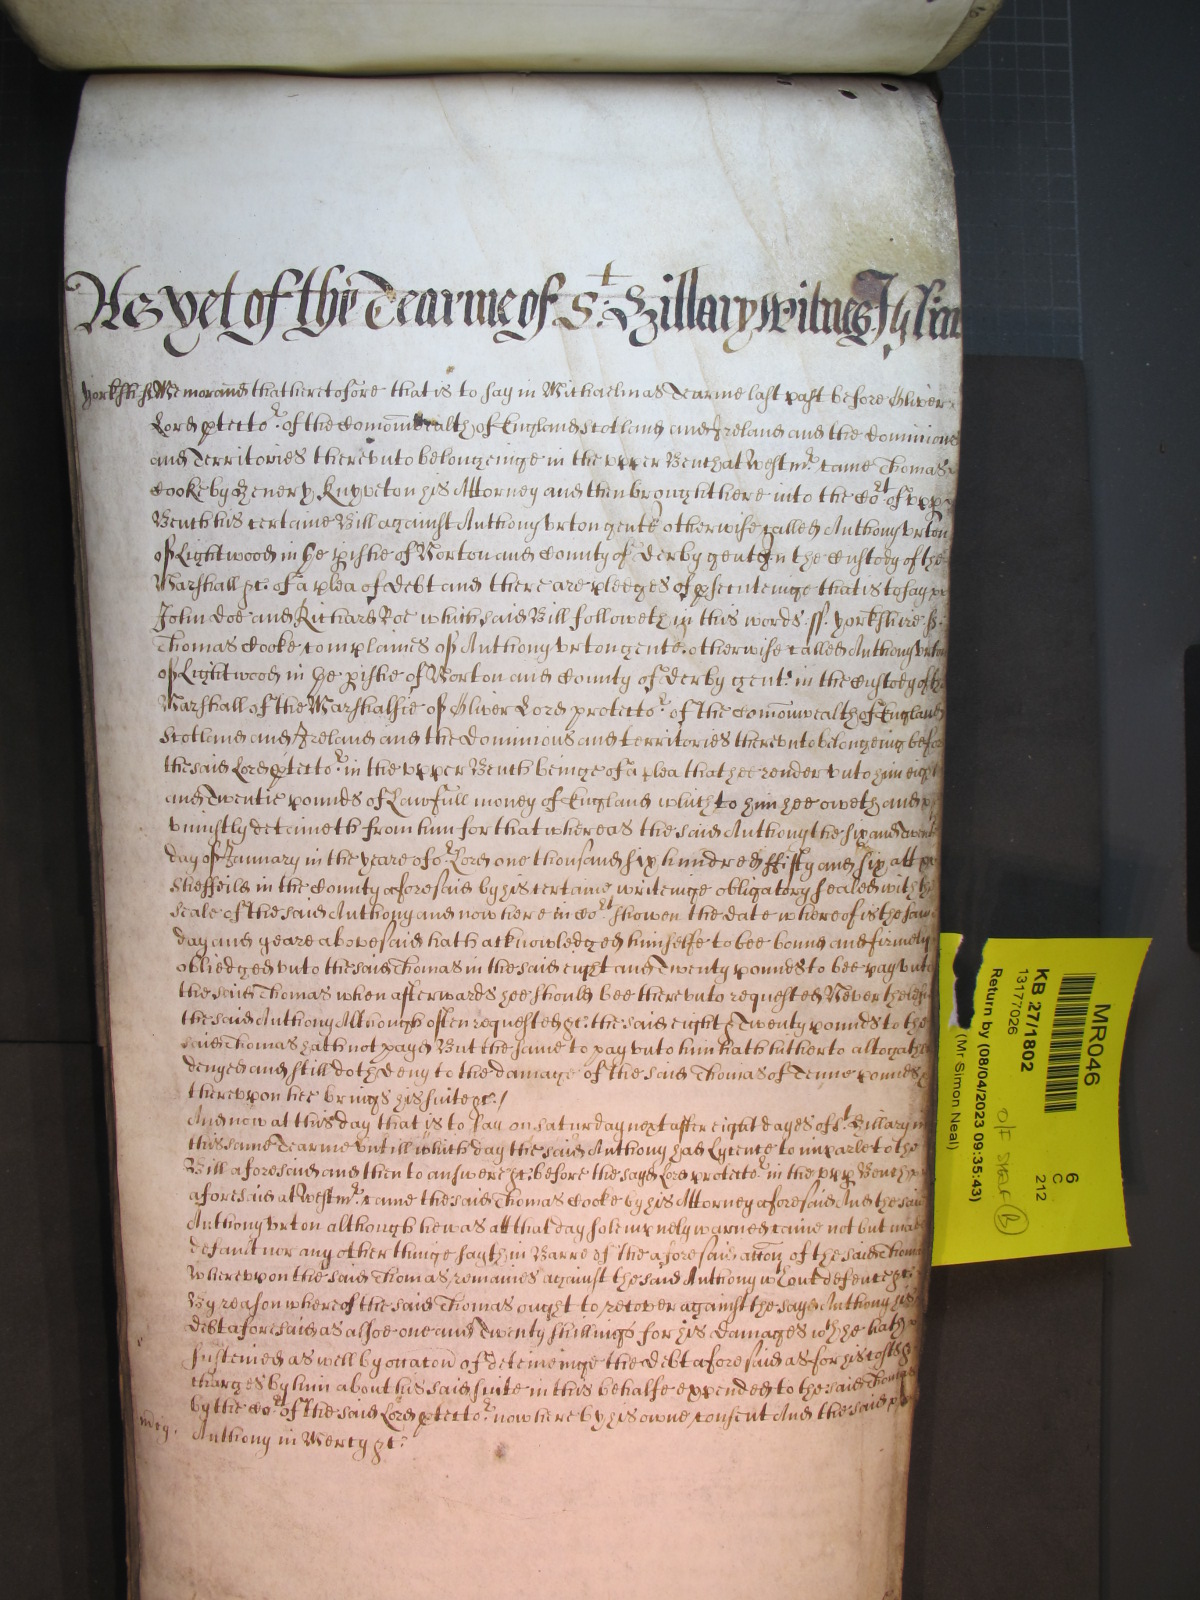 As yet of the Tearme of St: Hillary Witnes
Yorkshire ss Memorand that heretofore that is to say in Michaelmas Tearme last past before Oliver
Lord ptector of the Comonwealth of England Scotland and Ireland and the Dominions
and Territories therevnto belongeinge in the vpper Bench at Westmr came Thomas
Cooke by Henery Knyveton his Attorney and then brought here into the Cort of vpp
Bench his certaine Bill against Anthony vrton gente otherwise called Anthony vrton
of Lightwood in the pishe of Norton and County of Derby gent in the Custody of the
Marshall &c. of a plea of debt and there are pledges of psecuteinge that is to say
John Doe and Richard Roe which said Bill followeth in this words ss. Yorkshire ss.
Thomas Cooke complaines of Anthony vrton gente. otherwise called Anthony vrton
of Lightwood in the pishe of Norton and County of Derby gent: in the Custody of the
Marshall of the Marshalsie of Oliver Lord protector of the Comonwealth of England
Scotland and Ireland and the Dominions and territories therevnto belongeing before
the said Lord ptector in the vpper Bench beinge of a plea that hee render vnto him eight
and Twentie pounds of Lawfull money of England which to him hee oweth and
viniustly detaineth from him for that whereas the said Anthony the six and twent
day of January in the yeare of or Lord one thousand six hundred fifty and six att
Sheffeild in the County aforesaid by his certaine writeinge obligatory sealed with the
seale of the said Anthony and now here in Cort showen the date whereof is the same
day and yeare abovesaid hath acknowledged himselfe to bee bound and firmely
obliedged vnto the said Thomas in the said eight and Twenty pounds to bee payd vnto
the said Thomas when afterwards hee should bee therevnto requested Neverthelesse
the said Anthony Although often requested &c. the said eight & Twenty pounds to the
said Thomas hath not payd But the same to pay vnto him hath hitherto altogather
denyed and still doth deny to the damage of the said Thomas of Tenne pounds
therevpon hee brings his suite &c. /
And now at this day that is to say on saturday next after eight dayes of St. Hillary in
this same Tearme vntill which day the said Anthony had Lycence to imparle to the
Bill aforesaid and then to answere &c. before the sayd Lord protector in the vpp Bench
aforesaid at Westmr. came the said Thomas Cooke by his Attorney aforesaid And the said
Anthony vrton although he was att that day solempnely warned came not but made
default nor any other thinge sayth in Barre of the aforesaid accon of the said Thomas
Wherevpon the said Thomas remaines against the said Anthony wthout defence &c:
By reason whereof the said Thomas ought to recover against the sayd Anthony his
debt aforesaid as alsoe one and Twenty shillings for his damages wch he hath
susteined as well by occacon of deteineinge the debt aforesaid as for his costs &
charges by him about his said suite in this behalfe expended to the said Thomas
by the Cort of the said Lord ptector now here by his owne consent And the said
Anthony in Mercy &c:
mcy.
MR046
6
C
212
KB 27/1802
13177026
Return by (08/04/2023 09:35:43)
(Mr Simon Neal)
O/F
B